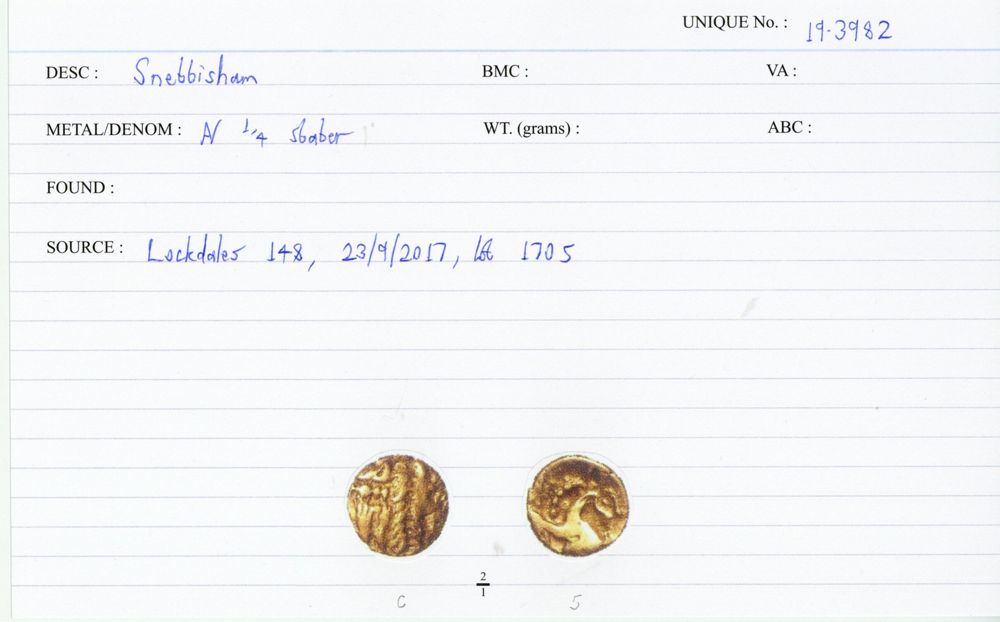 UNIQUE No. : 19-3982
DESC : Snebbisham BMC : VA :
METAL/DENOM : N 1/4 stater WT. (grams) : ABC :
FOUND :
SOURCE : Lockdales 148, 23/9/2017, lot 1705
2
1
C 5